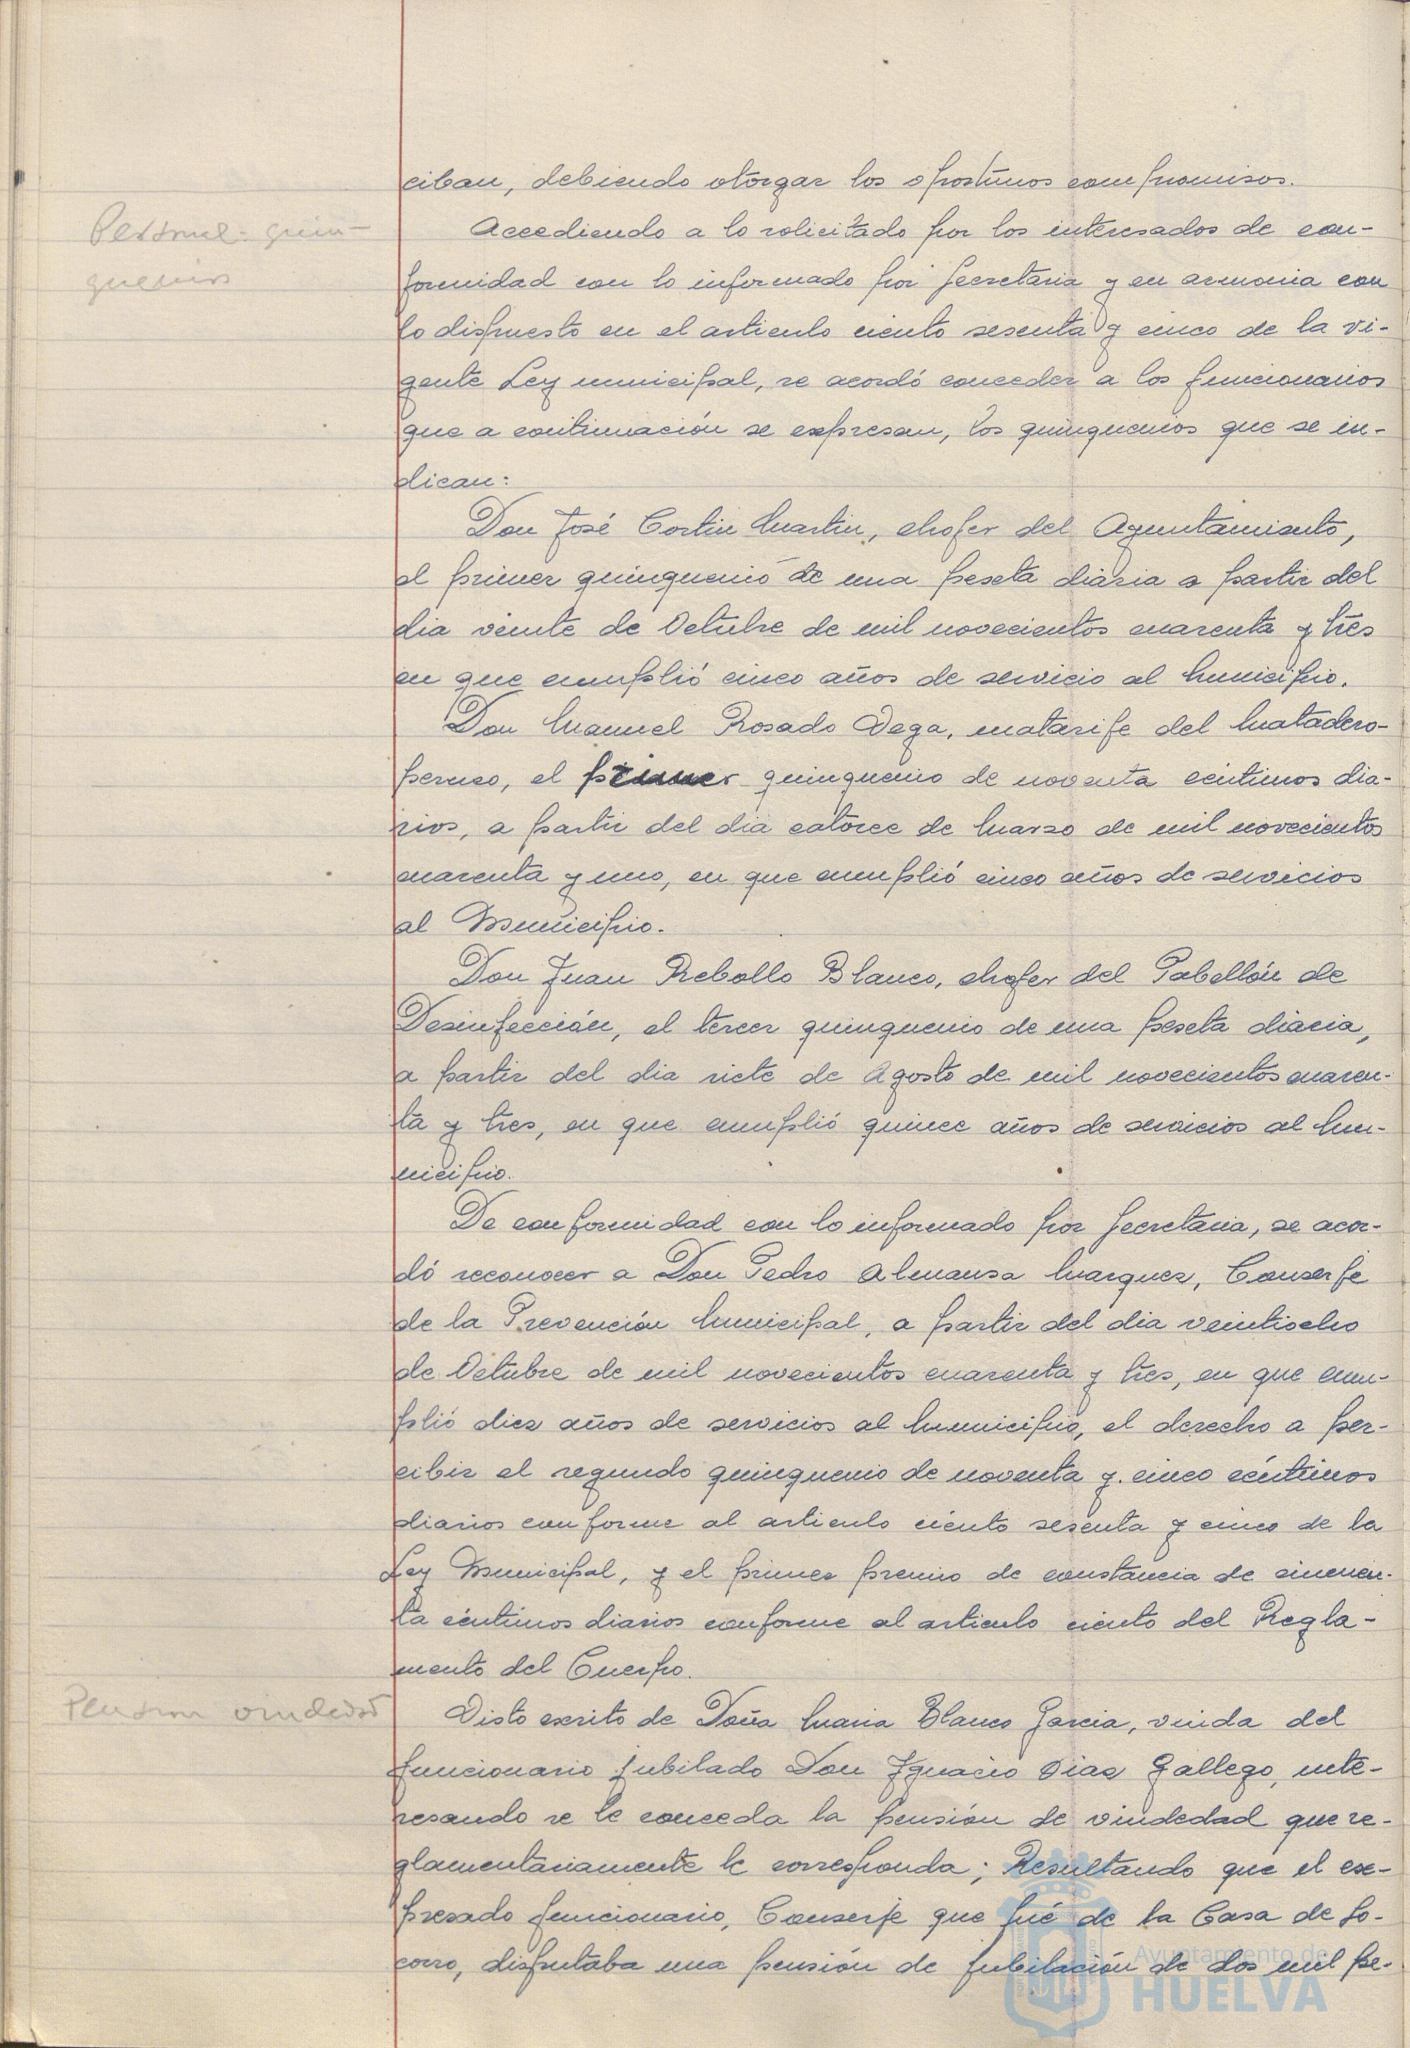 ciban, debiendo otorgar los oportunos compromisos.
Personal: quin-
quenios
Accediendo a lo solicitado por los interesados de con-
formidad con lo informado por Secretaria y en armonia con
lo dispuesto en el articulo ciento sesenta y cinco de la vi-
gente Ley municipal, se acordó conceder a los funcionarios
que a continuación se expresan, los quinquenios que se in-
dican:
Don José Cortin Martin, chofer del Ayuntamiento,
el primer quinquenio de una peseta diaria a partir del
dia veinte de Octubre de mil novecientos cuarenta y tres
en que cumplió cinco años de servicio al Municipio.
Don Manuel Rosado Vega, matarife del Matadero-
permco, el primer quinquenio de noventa céntimos dia-
rios, a partir del dia catorce de Marzo de mil novecientos
cuarenta y uno, en que cumplió cinco años de servicios
al Municipio.
Don Juan Rebollo Blanco, chofer del Pabellón de
Desinfección, el tercer quinquenio de una peseta diaria,
a partir del dia siete de Agosto de mil novecientos cuaren-
ta y tres, en que cumplió quince años de servicios al Mu-
nicipio.
De conformidad con lo informado por Secretaria, se acor-
dó reconocer a Don Pedro Almansa Marquez, Conserje
de la Prevención Municipal, a partir del dia veintiocho
de Octubre de mil novecientos cuarenta y tres, en que cum-
plió diez años de servicios al Municipio, el derecho a per-
cibir el segundo quinquenio de noventa y cinco céntimos
diarios conforme al articulo ciento sesenta y cinco de la
Ley Municipal, y el primer premio de constancia de cincuen-
ta céntimos diarios conforme al articulo ciento del Regla-
mento del Cuerpo.
Pension viudedad
Visto escrito de Doña Maria Blanco Garcia, viuda del
funcionario jubilado Don Ignacio Diaz Gallego, inte-
resando se le conceda la pensión de viudedad que re-
glamentariamente le corresponda; Resultando que el ex-
presado funcionario, Conserje que fué de la Casa de So-
corro, disfrutaba una pensión de jubilación de dos mil pe-
Ayuntamiento de
HUELVA